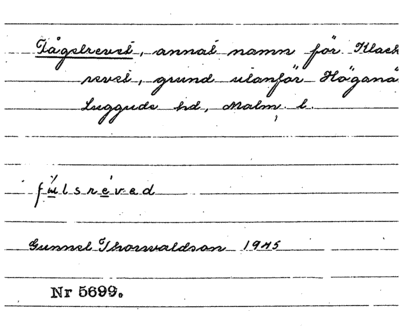 Fågelrevet, annat namn för Klack
revet, grund utanför Högana
Luggude hd, Malm. l.
fúlsréved
Gunnel Thorwaldson 1945
Nr 5699.